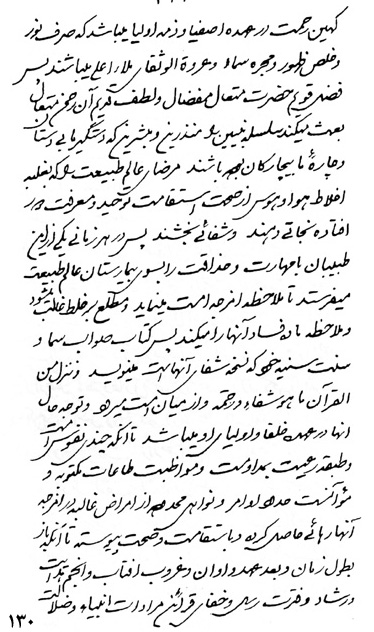 کهین رحمت در عهده اصفیا و زمه اولیا میباشد که صرف نور
و خلص ظهور و مجره سماء و عروة الوثقای ملاء اعلی میباشند پس
فضل قویم حضرت متعال مفضال و لطف قدیم آن ضخم متعال
بعث میکند سلسله نبیین و منذرین و مبشرین که دستگیر بی دستان
و چاره نابیچارکان باشند مرضای عالم طبیعت که بغلبه
اخلاط هوا و هوس از صحت استقامت توحید و معرفت دور
افتاده نجاتی دهند و شفائی بخشند پس در هر زمانی یکی از این
طبیبان با مهارت و حذاقت را بسوی بیمارستان عالم طبیعت
میفرستد تا ملاحظه امزجه امت مینماید و مطلع بر خلط غالب میشود
و ملاحظه ماده فساد آنها را میکند پس کتاب صواب سما و
سنت سنیه خود که نسخه شفای آنها است مینویسد و ننزل من
القرآن ما هو شفاء و رحمة و از میان امت میرود و توجه حال
آنها در عهده خلفا و اولیای او میباشد تا آنکه چندی نفوس امت
و طبقه رعیت بمداومت و مواظبت طاعات مکتوبه و
مؤانست حدود اوامر و نواهی محدوده از امراض غالبه بر امزجه
آنها رهائی حاصل کرده و باستقامت و صحت پیوسته تا آنکه باز
بطول زمان و بعد عهد و اوان و غروب آفتاب و انجم هدایت
و رشاد و فترت رسل و خفای قرائن مرادات انبیاء و ضلالت
۱۳۰